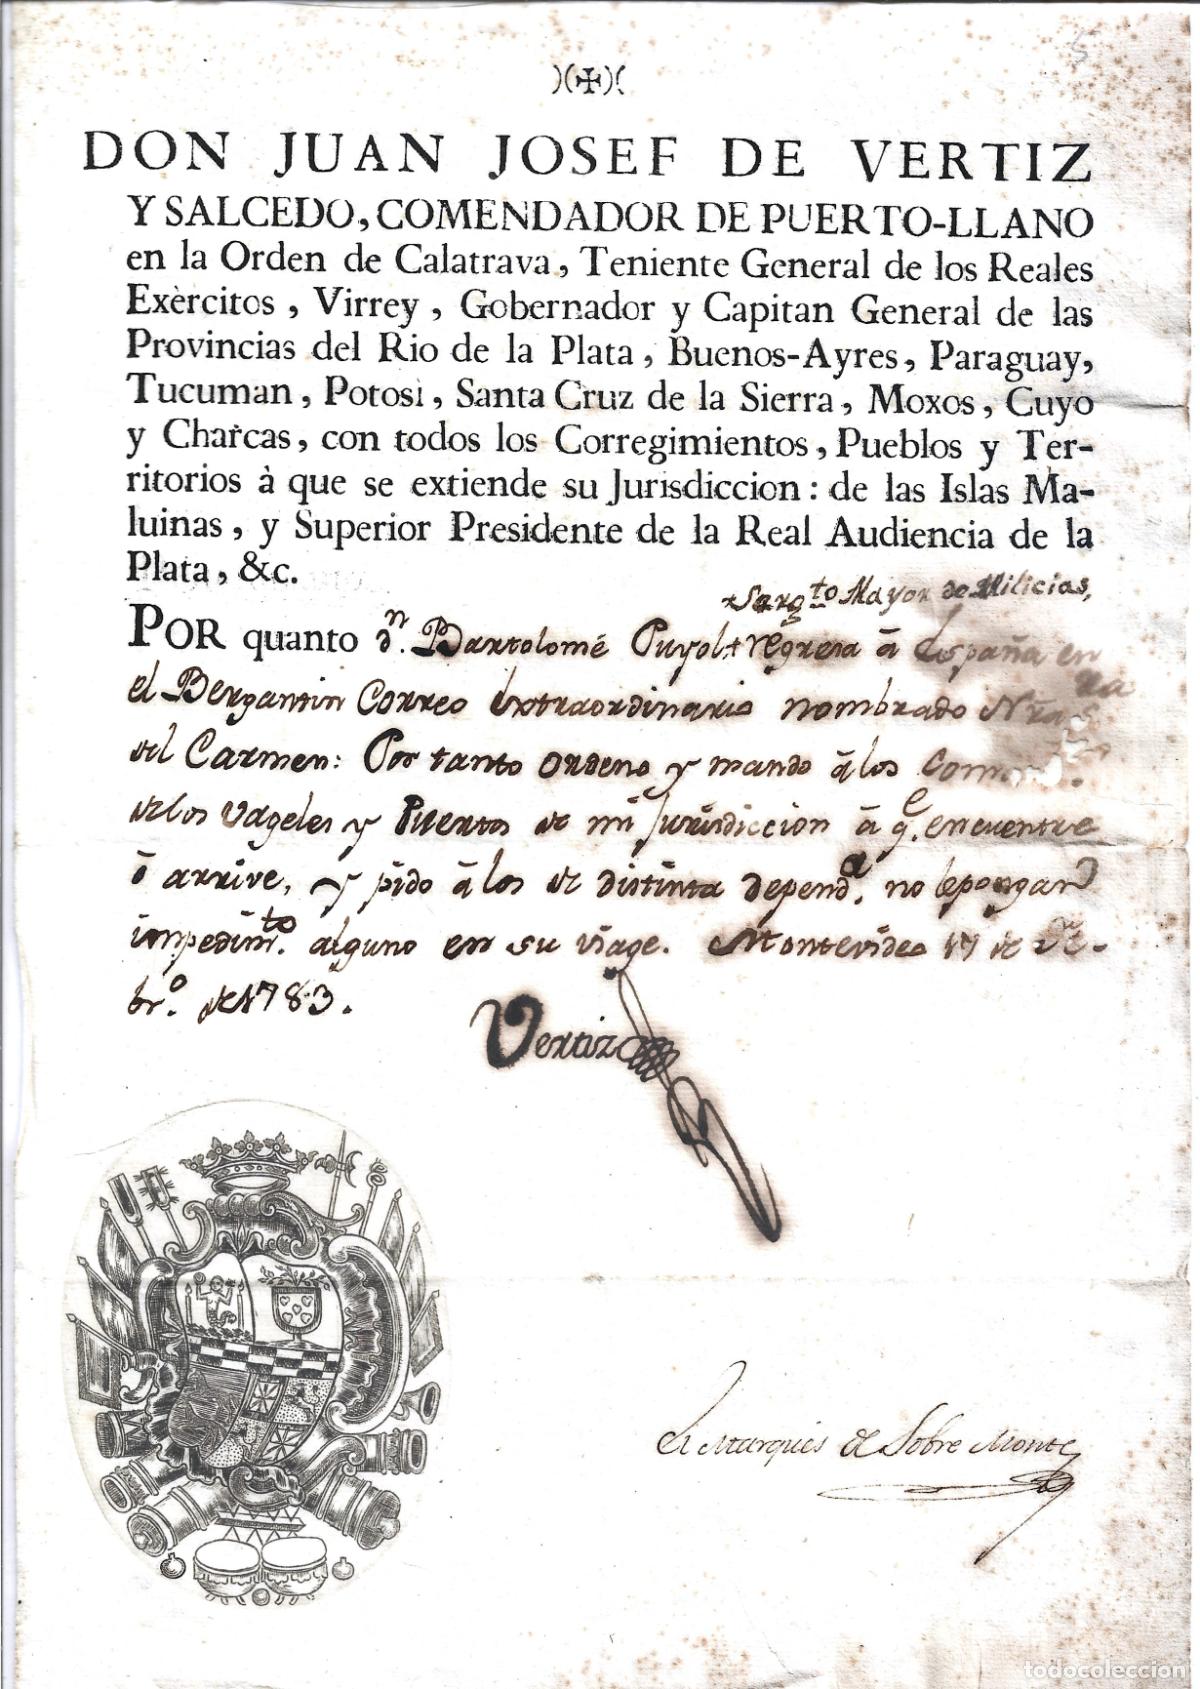 5
)(✠)(
DON JUAN JOSEF DE VERTIZ
Y SALCEDO, COMENDADOR DE PUERTO-LLANO
en la Orden de Calatrava, Teniente General de los Reales
Exèrcitos, Virrey, Gobernador y Capitan General de las
Provincias del Rio de la Plata, Buenos-Ayres, Paraguay,
Tucuman, Potosi, Santa Cruz de la Sierra, Moxos, Cuyo
y Charcas, con todos los Corregimientos, Pueblos y Ter-
ritorios à que se extiende su Jurisdiccion: de las Islas Ma-
luinas, y Superior Presidente de la Real Audiencia de la
Plata, &c.
+Sargto Mayor de Milicias,
POR quanto dn. Bartolomé Puyol+regresa á España en
el Bergantin Correo extraordinario nombrado Nra S
del Carmen: Por tanto ordeno y mando á los
de los Vageles y Puertos de mi jurisdiccion á qe. encuentre
ó arrive, y pido á los de distinta dependa. no le pongan
impedimto. alguno en su viage. Montevideo 17 de Dre.
bro. de 1783.
Vertiz
El Marques de Sobre Monte
todocoleccion